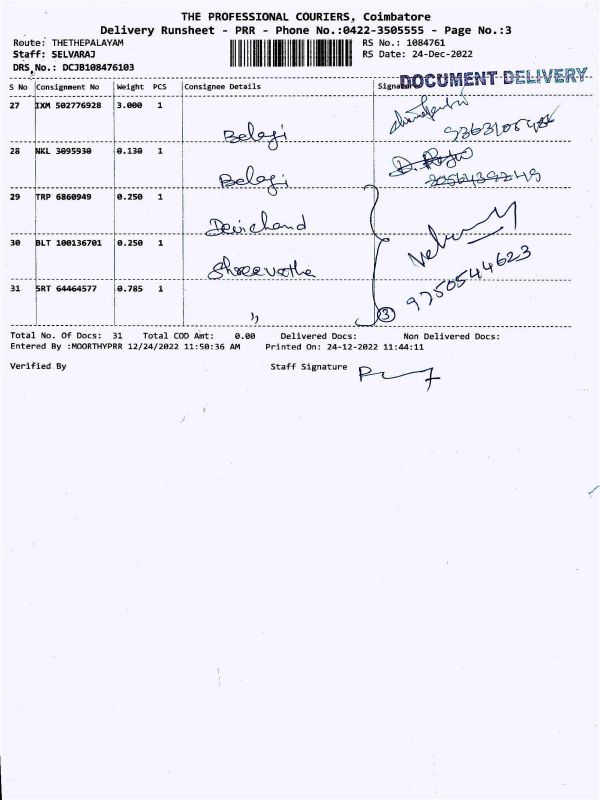 THE PROFESSIONAL COURIERS, Coimbatore
Delivery Runsheet - PRR - Phone No.:0422-3505555 - Page No.:3
Route: THETHEPALAYAM RS No.: 1084761
Staff: SELVARAJ RS Date: 24-Dec-2022
DRS No.: DCJB108476103
DOCUMENT DELIVERY
S No Consignment No Weight PCS Consignee Details
27 IXM 502776928 3.000 1
Belagi
28 NKL 3095930 0.130 1
Belagi
29 TRP 6860949 0.250 1
Devichand
30 BLT 100136701 0.250 1
Shreevatha
9750544623
31 SRT 64464577 0.785 1
,, 3
Total No. Of Docs: 31 Total COD Amt: 0.00 Delivered Docs: Non Delivered Docs:
Entered By :MOORTHYPRR 12/24/2022 11:50:36 AM Printed On: 24-12-2022 11:44:11
Verified By Staff Signature